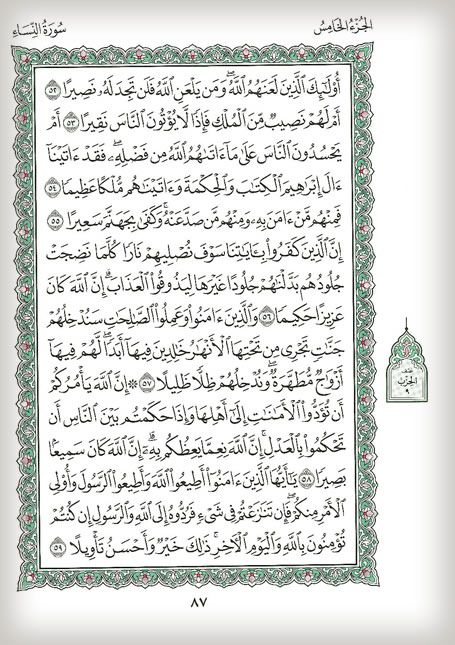 الجزء الخامس
سورة النساء
أُو۟لَٰٓئِكَ ٱلَّذِينَ لَعَنَهُمُ ٱللَّهُۖ وَمَن يَلْعَنِ ٱللَّهُ فَلَن تَجِدَ لَهُۥ نَصِيرًا ٥٢
أَمْ لَهُمْ نَصِيبٌ مِّنَ ٱلْمُلْكِ فَإِذًا لَّا يُؤْتُونَ ٱلنَّاسَ نَقِيرًا ٥٣ أَمْ
يَحْسُدُونَ ٱلنَّاسَ عَلَىٰ مَآ ءَاتَىٰهُمُ ٱللَّهُ مِن فَضْلِهِۦۖ فَقَدْ ءَاتَيْنَآ
ءَالَ إِبْرَٰهِيمَ ٱلْكِتَٰبَ وَٱلْحِكْمَةَ وَءَاتَيْنَٰهُم مُّلْكًا عَظِيمًا ٥٤
فَمِنْهُم مَّنْ ءَامَنَ بِهِۦ وَمِنْهُم مَّن صَدَّ عَنْهُۚ وَكَفَىٰ بِجَهَنَّمَ سَعِيرًا ٥٥
إِنَّ ٱلَّذِينَ كَفَرُوا۟ بِـَٔايَٰتِنَا سَوْفَ نُصْلِيهِمْ نَارًا كُلَّمَا نَضِجَتْ
جُلُودُهُم بَدَّلْنَٰهُمْ جُلُودًا غَيْرَهَا لِيَذُوقُوا۟ ٱلْعَذَابَۗ إِنَّ ٱللَّهَ كَانَ
عَزِيزًا حَكِيمًا ٥٦ وَٱلَّذِينَ ءَامَنُوا۟ وَعَمِلُوا۟ ٱلصَّٰلِحَٰتِ سَنُدْخِلُهُمْ
جَنَّٰتٍ تَجْرِى مِن تَحْتِهَا ٱلْأَنْهَٰرُ خَٰلِدِينَ فِيهَآ أَبَدًاۖ لَّهُمْ فِيهَآ
أَزْوَٰجٌ مُّطَهَّرَةٌۖ وَنُدْخِلُهُمْ ظِلًّا ظَلِيلًا ٥٧ ۞ إِنَّ ٱللَّهَ يَأْمُرُكُمْ
أَن تُؤَدُّوا۟ ٱلْأَمَٰنَٰتِ إِلَىٰٓ أَهْلِهَا وَإِذَا حَكَمْتُم بَيْنَ ٱلنَّاسِ أَن
تَحْكُمُوا۟ بِٱلْعَدْلِۚ إِنَّ ٱللَّهَ نِعِمَّا يَعِظُكُم بِهِۦٓۗ إِنَّ ٱللَّهَ كَانَ سَمِيعًۢا
بَصِيرًا ٥٨ يَٰٓأَيُّهَا ٱلَّذِينَ ءَامَنُوٓا۟ أَطِيعُوا۟ ٱللَّهَ وَأَطِيعُوا۟ ٱلرَّسُولَ وَأُو۟لِى
ٱلْأَمْرِ مِنكُمْۖ فَإِن تَنَٰزَعْتُمْ فِى شَىْءٍ فَرُدُّوهُ إِلَى ٱللَّهِ وَٱلرَّسُولِ إِن كُنتُمْ
تُؤْمِنُونَ بِٱللَّهِ وَٱلْيَوْمِ ٱلْءَاخِرِۚ ذَٰلِكَ خَيْرٌ وَأَحْسَنُ تَأْوِيلًا ٥٩
الحزب
٩
٨٧